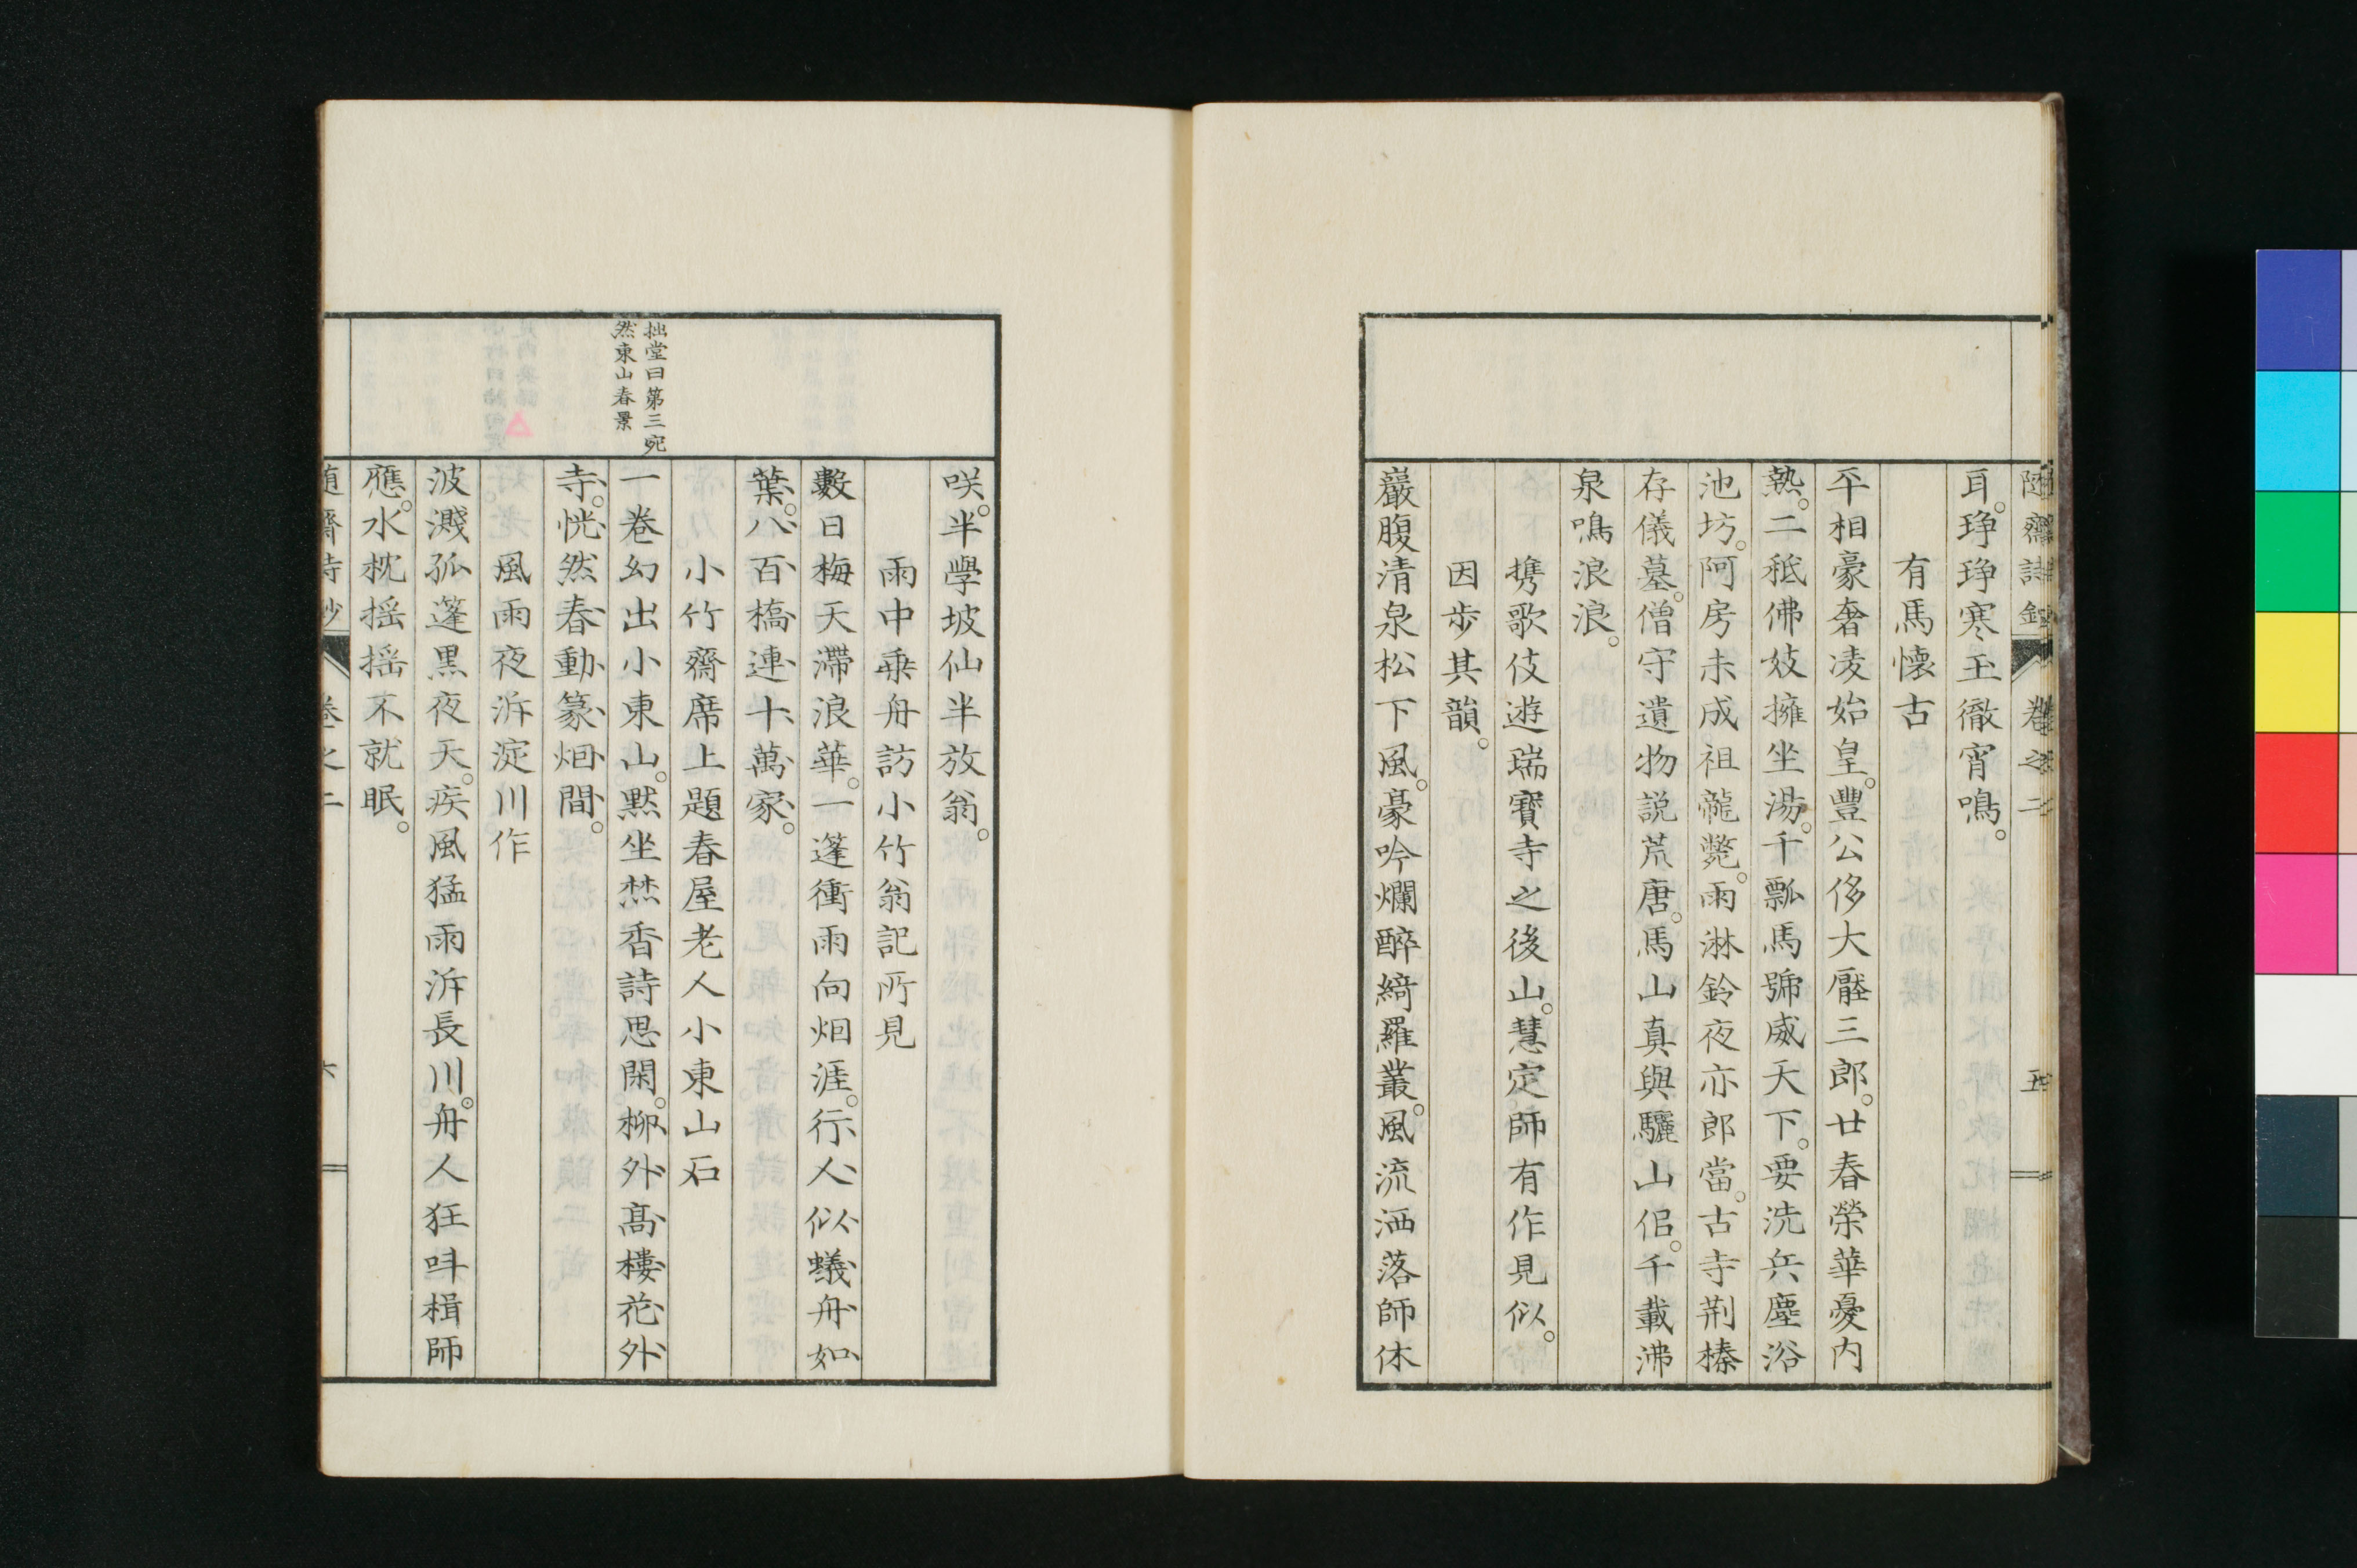 耳。琤琤寒玉徹宵鳴。
有馬懷古
平相豪奢凌始皇。豐公侈大壓三郎。廿春榮華憂内
熱。二秪佛妓擁坐湯。千瓢馬號威天下。要洗兵塵浴
池坊。阿房未成祖龍斃。雨淋鈴夜亦郎當。古寺荆榛
存儀墓。僧守遺物説荒唐。馬山真與驪山侣。千載沸
泉鳴浪浪。
携歌伎遊瑞寶寺之後山。慧定師有作見似。
因步其韻。
巖腹清泉松下風。豪吟爛醉綺羅叢。風流洒落師休
咲。半學坡仙半放翁。
雨中乗舟訪小竹翁記所見
數日梅天滯浪華。一篷衝雨向烟涯。行人似蟻舟如
葉。八百橋連十萬家。
小竹齋席上題春屋老人小東山石
拙堂曰第三宛
然東山春景
一巻幻出小東山。默坐焚香詩思閑。柳外髙樓花外
寺。恍然春動篆烟間。
風雨夜泝淀川作
波濺孤篷黒夜天。疾風猛雨泝長川。舟人狂呌楫師
應。水枕揺揺不就眠。